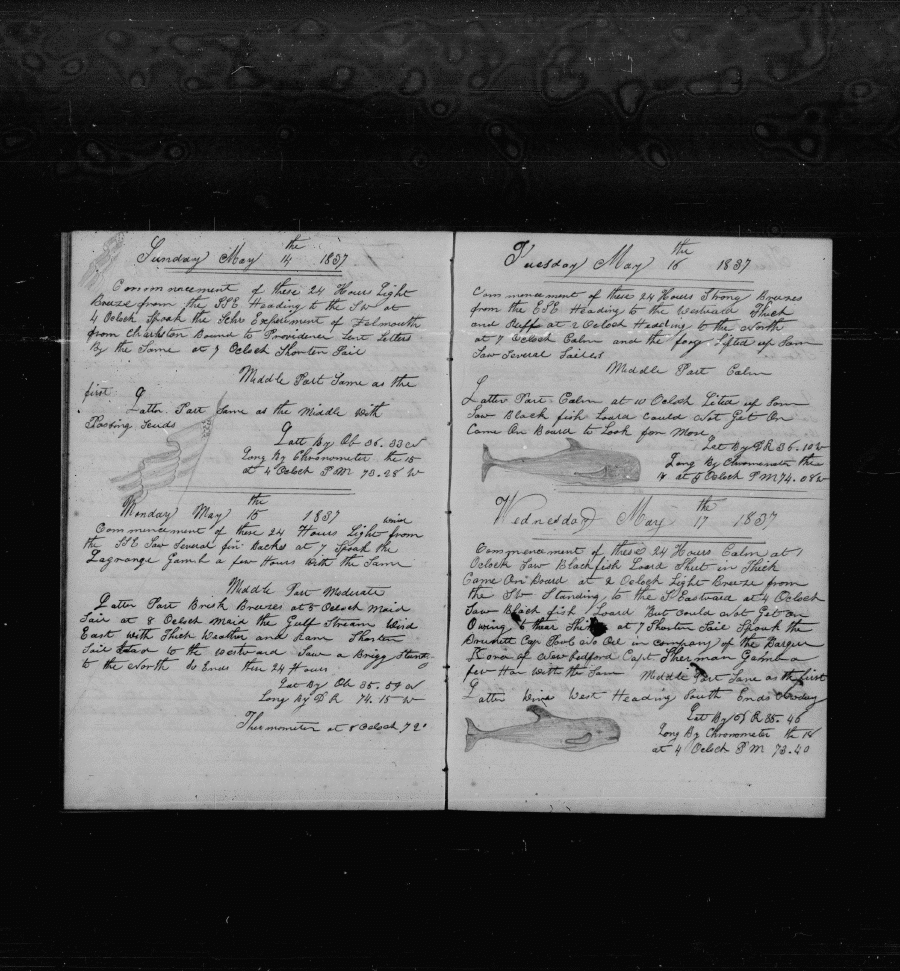 Sunday May 14 the 1837
Commencement of these 24 Hours Light
Breeze from the SSE Heading to the SW at
4 Oclock Spoak the Schr Experiment of Falmouth
from Charlston Bound to Providence Sent Letters
By the Same at 7 Oclock Shorten Sail
Middle Part Same as the
first
Latter Part Same as the Middle With
Passing Scuds
Latt By Ob 36.33 N
Long By Chronometer the 15
at 4 Oclock P M 73.28 W
Monday May 15 the 1837
Commencement of these 24 Hours Light wind from
the SSE Saw Several fin Backs at 7 Spoak the
Lagrange Gamd a few Hours With the Same
Middle Part Moderate
Latter Part Brisk Breezes at 5 Oclock Maid
Sail at 8 Oclock Maid the Gulf Stream Wind
East with Thick Weather and Rain Shorten
Sail to the Westward Saw a Brigg Standg
to the North So Ends these 24 Hours
Lat By Ob 35.59 N
Long By D R 74.15 W
Thermometer at 8 Oclock 72°
Tuesday May 16 the 1837
Commencement of these 24 Hours Strong Breezes
from the ESE Heading to the Westward Thick
and Ruff at 2 Oclock Heading to the North
at 7 Oclock Calm and the fog Lifted up Som
Saw Several Sailes
Middle Part Calm
Latter Part Calm at 10 Oclock Lited up Som
Saw Black fish Loard Could Not Get On
Came On Board to Look for More
Lat By D R 36.10 N
Long By Chronometer the
17 at 5 Oclock P M 74.08 W
Wednesday May 17 the 1837
Commencement of these 24 Hours Calm at 1
Oclock Saw Blackfish Loard Shut in Thick
Came On Board at 2 Oclock Light Breeze from
the SW Standing to the S Eastward at 4 Oclock
Saw Black fish Loard But Could Not Get on
Owing to thear at 7 Shorten Sail Spoak the
Cap Oil in company of the Barque
of New Bedford Capt Sherman Gamd a
few Hor With the Sam Middle Part Same as the first
Latter Wind West Heading South Ends
Lat By D R 35.46
Long By Chronometer the 18
at 4 Oclock P M 73.40